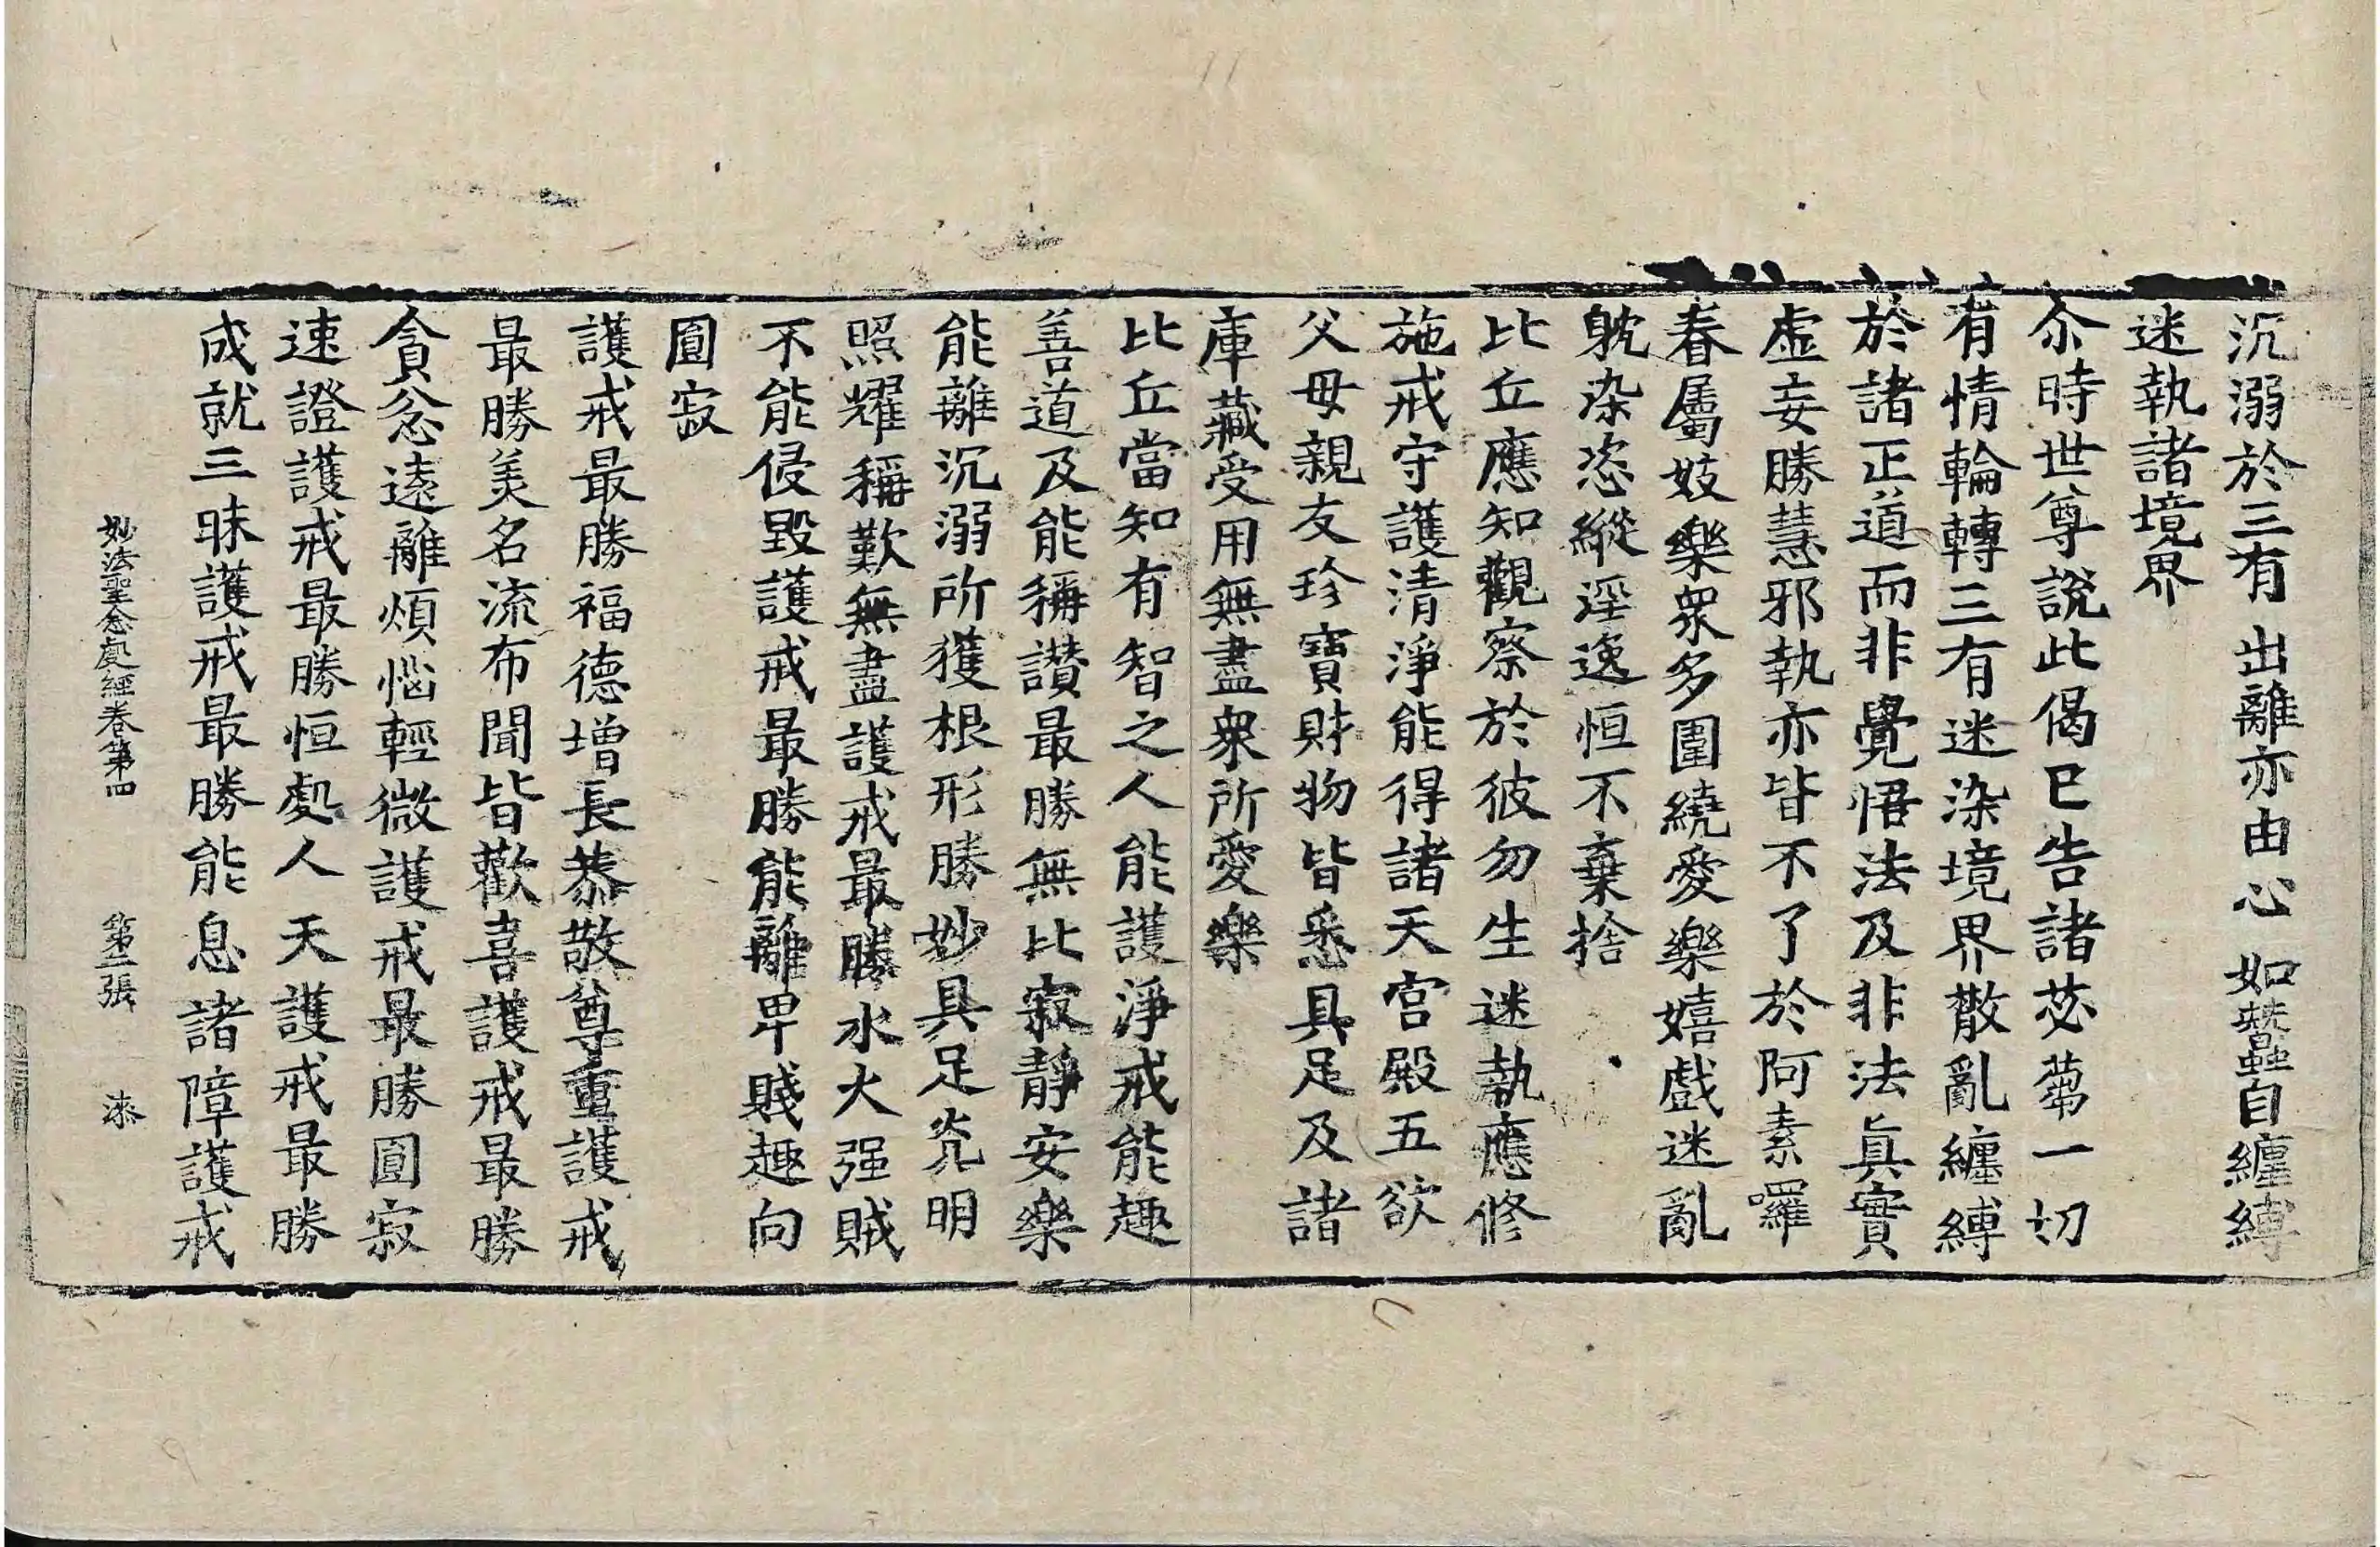 沉溺於三有 出離亦由心 如蠶自纏縛
迷執諸境界
尒時世尊說此偈已告諸苾蒭一切
有情輪轉三有迷染境界散亂纏縛
於諸正道而非覺悟法及非法真實
虛妄勝慧邪執亦皆不了於阿素囉
眷屬妓樂衆多圍繞愛樂嬉戲迷亂
躭染恣縱淫逸恒不棄捨
比丘應知觀察於彼勿生迷執應修
施戒守護清淨能得諸天宮殿五欲
父母親友珍寶財物皆悉具足及諸
庫藏受用無盡衆所愛樂
比丘當知有智之人能護淨戒能趣
善道及能稱讚最勝無比寂靜安樂
能離沉溺所獲根形勝妙具足光明
照耀稱歎無盡護戒最勝水火强賊
不能侵毀護戒最勝能離卑賤趣向
圓寂
護戒最勝福德增長恭敬尊重護戒
最勝美名流布聞皆歡喜護戒最勝
貪忿遠離煩惱輕微護戒最勝圓寂
速證護戒最勝恒處人天護戒最勝
成就三昧護戒最勝能息諸障護戒
妙法聖念處經卷第四 第二張 漆